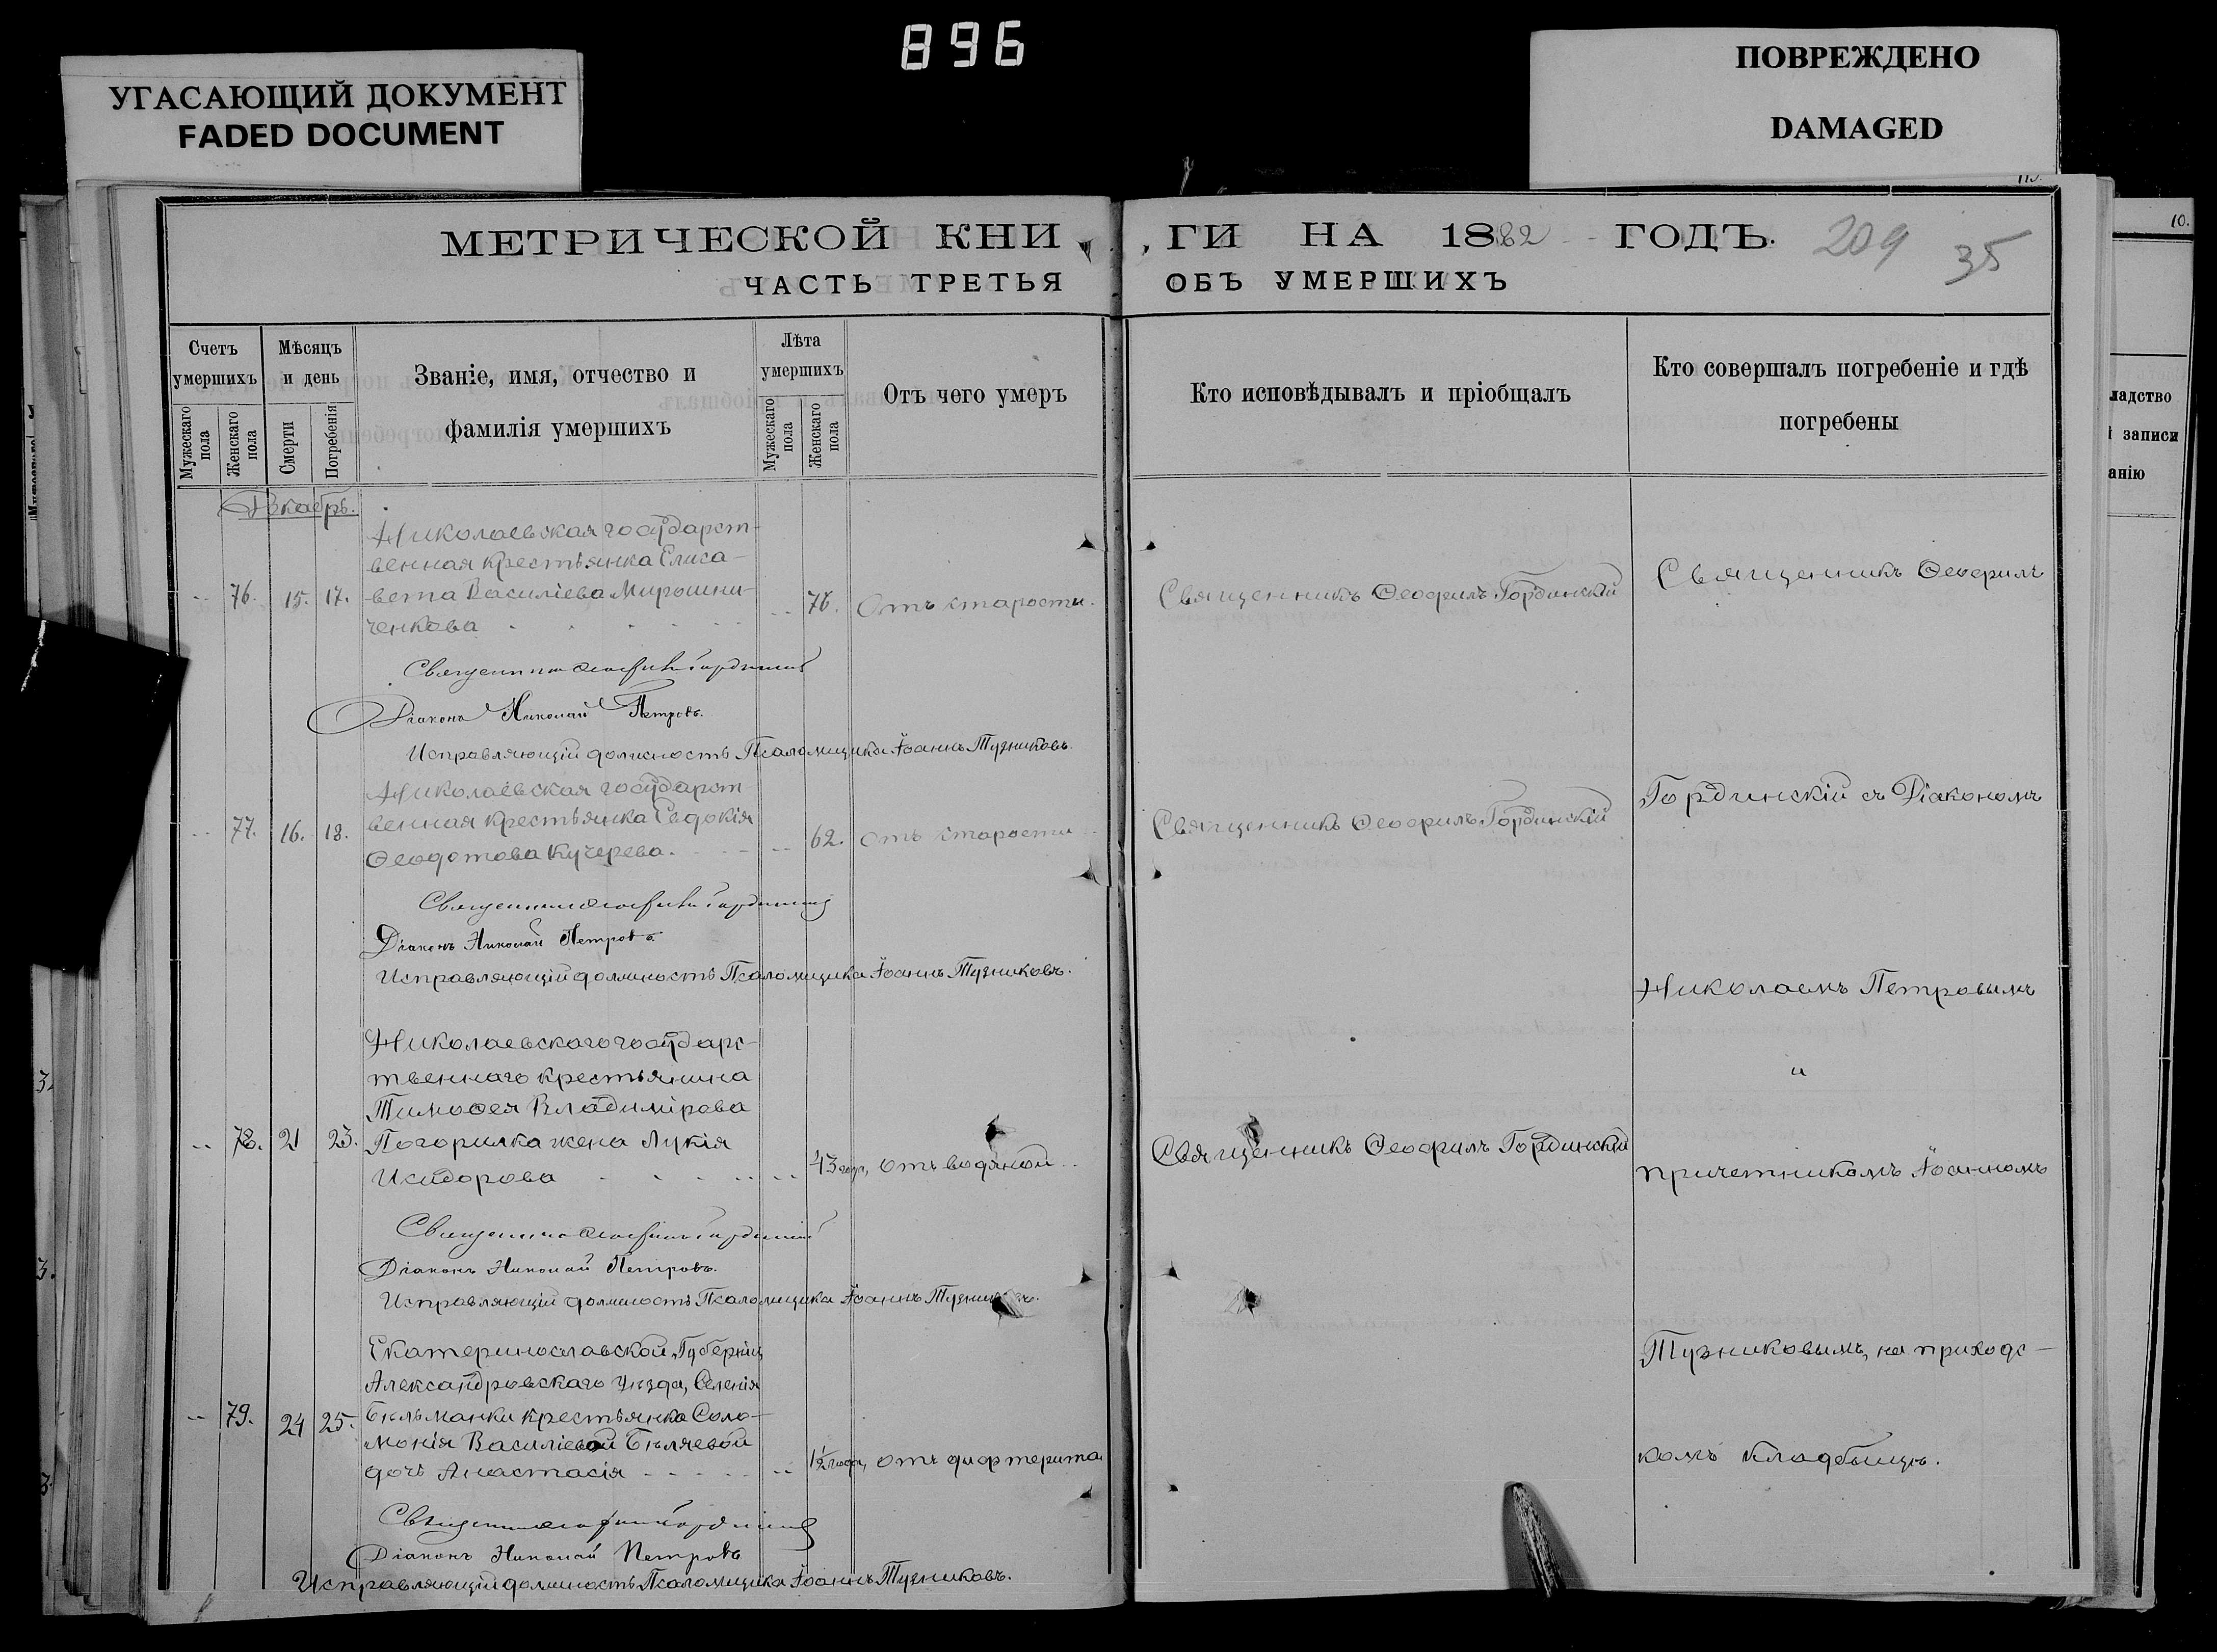 896
УГАСАЮЩИЙ ДОКУМЕНТ
FADED DOCUMENT
ПОВРЕЖДЕНО
DAMAGED
МЕТРИЧЕСКОЙ КНИ
ГИ НА 1882 ГОДЪ.
209
35
ЧАСТЬ ТРЕТЬЯ
ОБЪ УМЕРШИХЪ
Счетъ умершихъ
Мужескаго пола
Женскаго пола
Мѣсяцъ и день
Смерти
Погребенія
Званіе, имя, отчество и
фамилія умершихъ
Лѣта умершихъ
Мужескаго пола
Женскаго пола
Отъ чего умеръ
Кто исповѣдывалъ и пріобщалъ
Кто совершалъ погребеніе и гдѣ
погребены
10.
ладство
записи
анію
Декабрь.
Николаевская государст-
венная крестьянка Елиса-
76. 15. 17. вета Василіева Мирошни- 76. Отъ старости. Священникъ Ѳеофилъ Гординскій
ченкова
Священникъ Ѳеофилъ Гординскій
Діаконъ Николай Петровъ.
Исправляющій должность Псаломщика Іоаннъ Тузниковъ.
Николаевская государст
77. 16. 18. венная крестьянка Евдокія 62. Отъ старости Священникъ Ѳеофилъ Гординскій
Ѳеодотова Кучерева.
Священникъ Ѳеофилъ Гординскій
Діаконъ Николай Петровъ.
Исправляющій должность Псаломщика Іоаннъ Тузниковъ.
Николаевского государс-
твеннаго крестьянина
Тимоѳея Владимірова
78. 21 23. Погорилка жена Лукія
Исидорова 43 года, отъ водяной Священникъ Ѳеофилъ Гординскій
Священникъ Ѳеофилъ Гординскій
Діаконъ Николай Петровъ.
Исправляющій должность Псаломщика Іоаннъ Тузниковъ.
Екатеринославской Губерніи,
Александровскаго уѣзда, Селенія
79. 24 25. Бѣльманки крестьянка Соло-
монія Василіевой Бѣляевой
дочь Анастасія 1½ года, отъ дифтерита
Священникъ Ѳеофилъ Гординскій
Діаконъ Николай Петровъ
Исправляющій должность Псаломщика Іоаннъ Тузниковъ.
Священникъ Ѳеофилъ
Гординскій съ Діакономъ
Николаемъ Петровымъ
и
причетникомъ Іоанномъ
Тузниковымъ, на приходс-
комъ кладбищѣ.